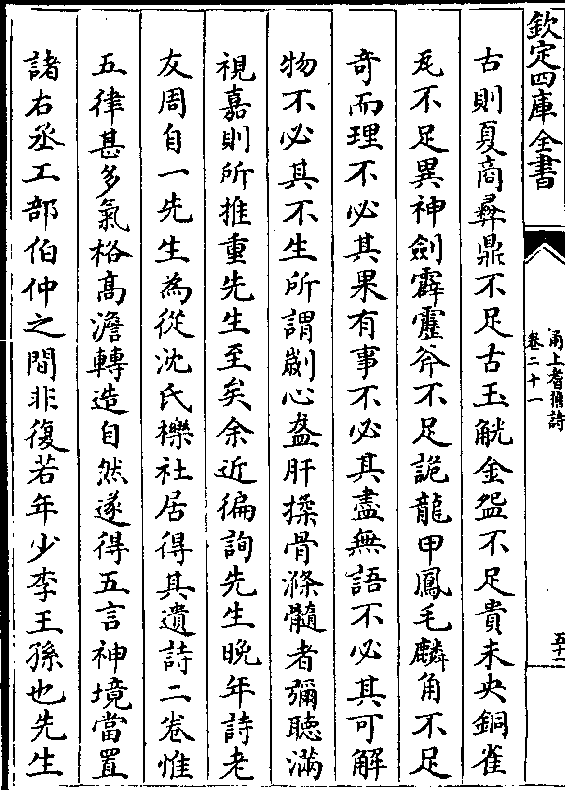 欽定四庫全書
甬上耆舊詩
卷二十一
五十一
古則夏商彛鼎不足古玉觥金盌不足貴未央銅雀
瓦不足異神劍霹靂斧不足詭龍甲鳳毛麟角不足
奇而理不必其果有事不必其盡無語不必其可解
物不必其不生所謂劌心盩肝搡骨滌髓者彌聴滿
視嘉則所推重先生至矣余近徧詢先生晚年詩老
友周自一先生為從沈氏櫟社居得其遺詩二卷惟
五律甚多氣格髙澹轉造自然遂得五言神境當置
諸右丞工部伯仲之間非復若年少李王孫也先生